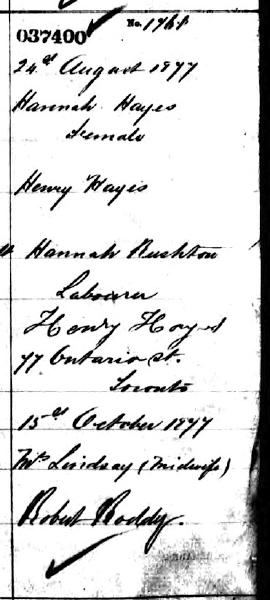 037400
24th August 1877
Hannah Hayes
Female
Henry Hayes
Hannah Rushton
Labourer
Henry Hayes
77 Ontario St.
Toronto
15th October 1877
Mrs Lindsay (Midwife)
Robert Roddy.